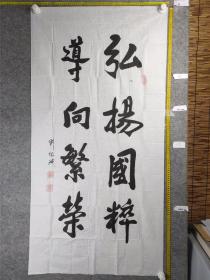 弘揚國粹
導向繁榮